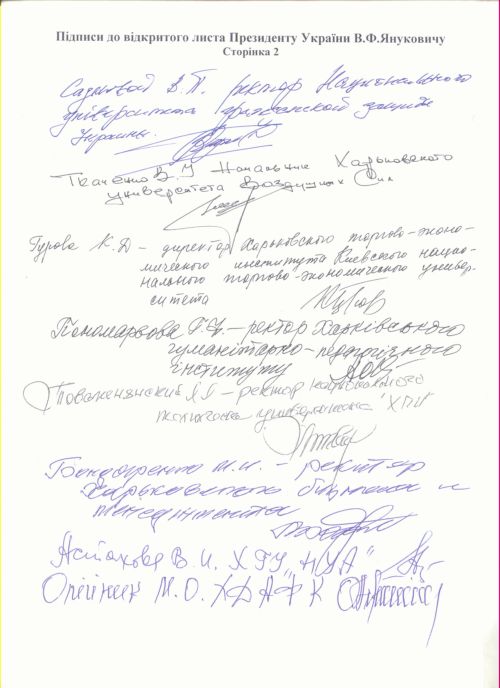 Підписи до відкритого листа Президенту України В.Ф.Януковичу
Сторінка 2
В.П. ректор Национального
университета гражданской защиты
Украины.
Ткаченко В.И Начальник Харьковского
университета Воздушных Сил
Гурова К.Д – директор Харьковского торгово-эконо-
мического института Киевского нацио-
нального торгово-экономического универ-
ситета
Пономарьова Г.Ф. – ректор Харківського
гуманітарно-педагогічного
інституту
Товажнянский Л Л – ректор национального
университета "ХПИ"
Бондаренко М.И. – ректор
Харьковского бизнеса и
менеджмента
Астахова В.И. ХГУ "НУА"
Олійник М.О. ХДАФК